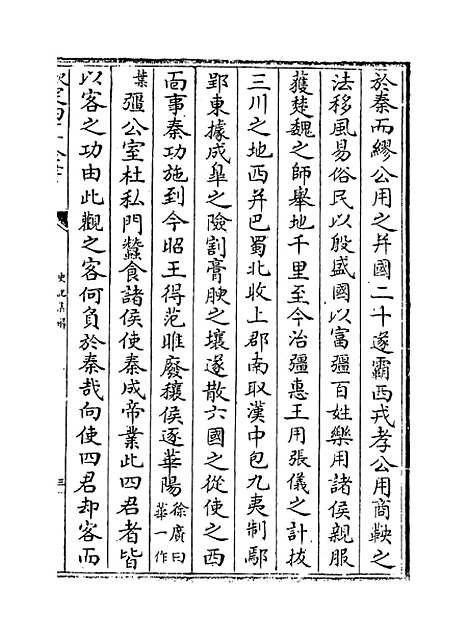 於秦而繆公用之并國二十遂霸西戎孝公用商鞅之
法移風易俗民以殷盛國以富彊百姓樂用諸侯親服
獲楚魏之師舉地千里至今治彊惠王用張儀之計拔
三川之地西并巴蜀北收上郡南取漢中包九夷制鄢
郢東據成皐之險割膏腴之壤遂散六國之從使之西
面事秦功施到今昭王得范雎廢穰侯逐華陽徐廣曰華一作
葉彊公室杜私門蠶食諸侯使秦成帝業此四君者皆
以客之功由此觀之客何負於秦哉向使四君却客而
史記集解